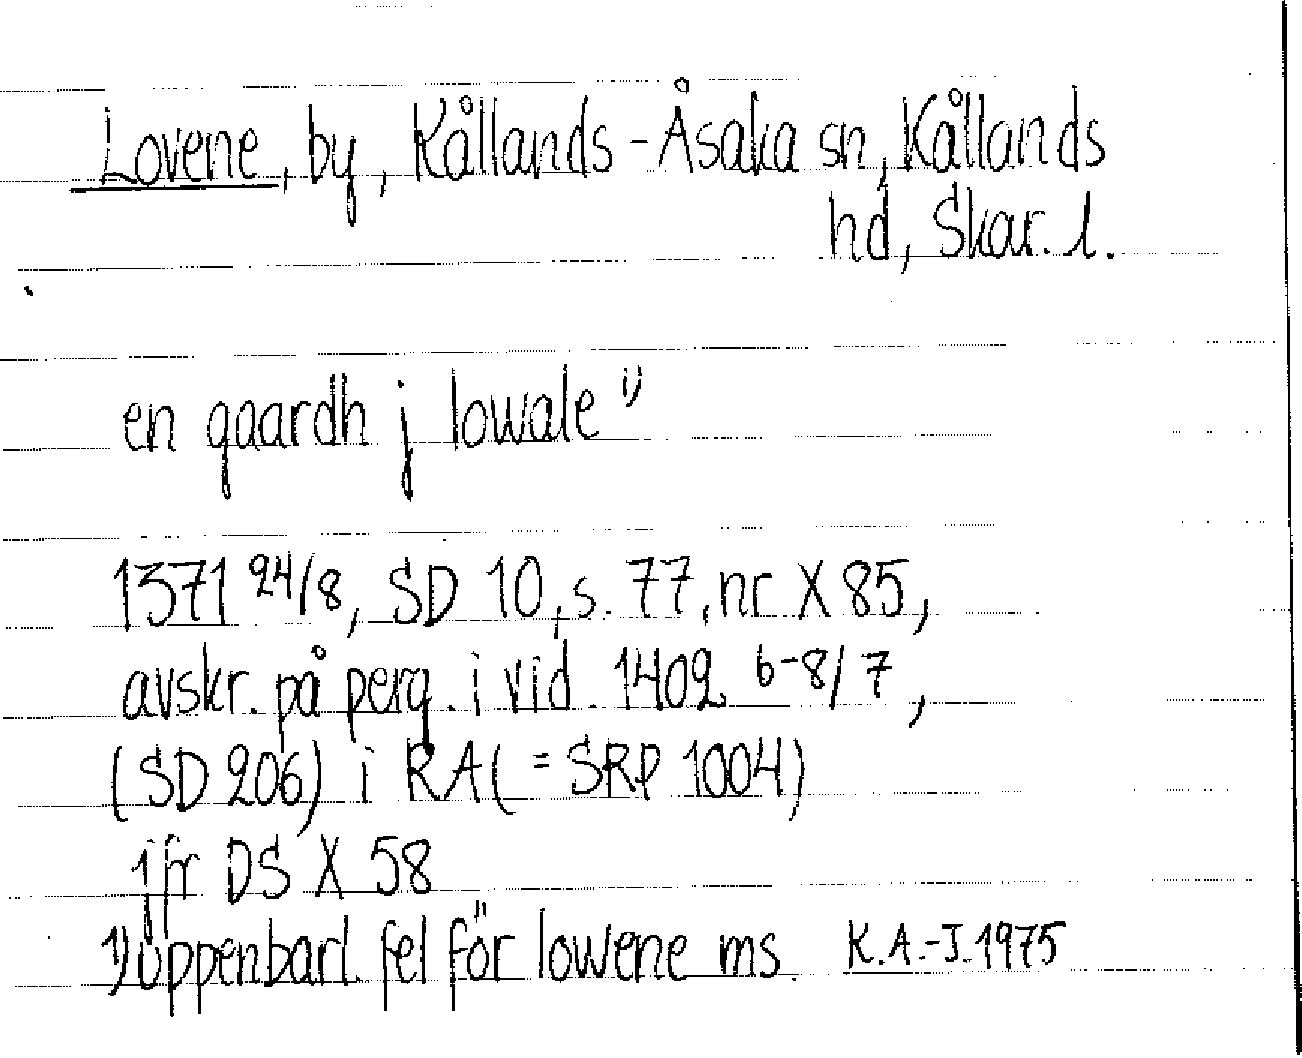 Lovene, by, Kållands-Åsaka sn, Kållands
hd, Skar. l.
en gaardh j lowale 1)
1371 24/8, SD 10, s. 77, nr X 85,
avskr. på perg. i vid. 1402 6-8/7,
(SD 206) i RA (= SRP 1004)
jfr DS X 58
1) uppenbarl. fel för lowene ms. K.A.-J. 1975